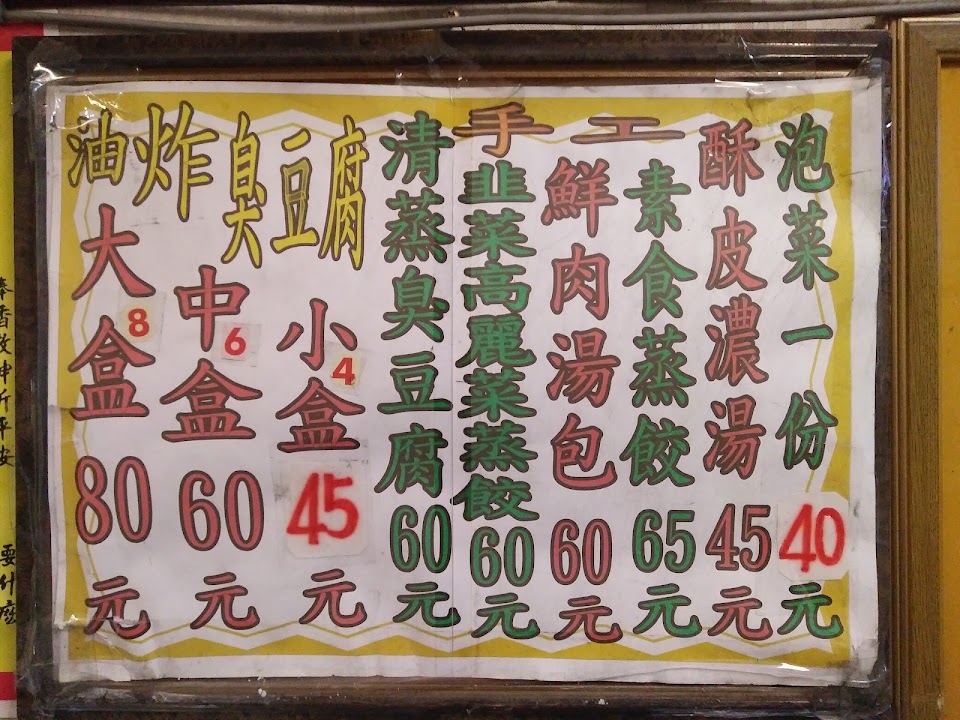 油炸臭豆腐
大盒 8 80元
中盒 6 60元
小盒 4 45元
清蒸臭豆腐60元
手工
韭菜高麗菜蒸餃60元
鮮肉湯包60元
素食蒸餃65元
酥皮濃湯45元
泡菜一份40元